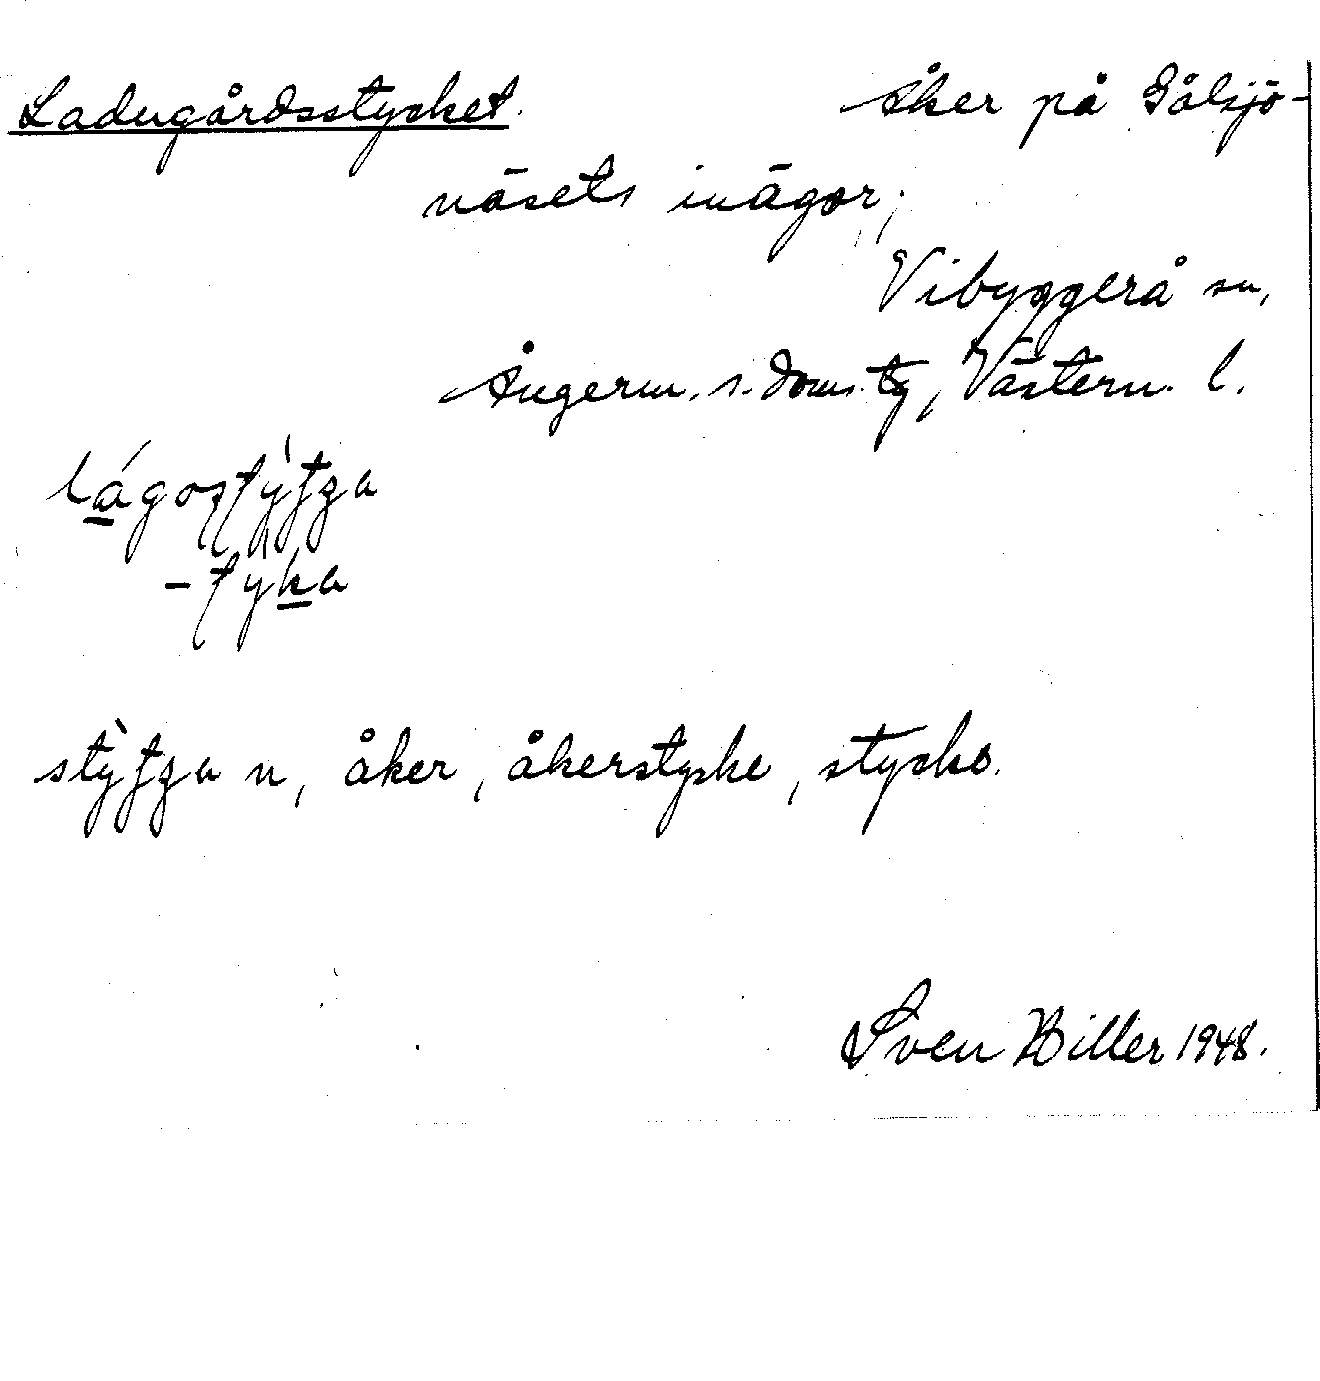 Ladugårdsstycket. Åker på Gålsjö-
näsets inägor;
Vibyggerå sn,
Ångerm. s. doms. ty, Västern. l.
stỳtza n, åker, åkerstycke, stycke.
Sven Biller 1948.